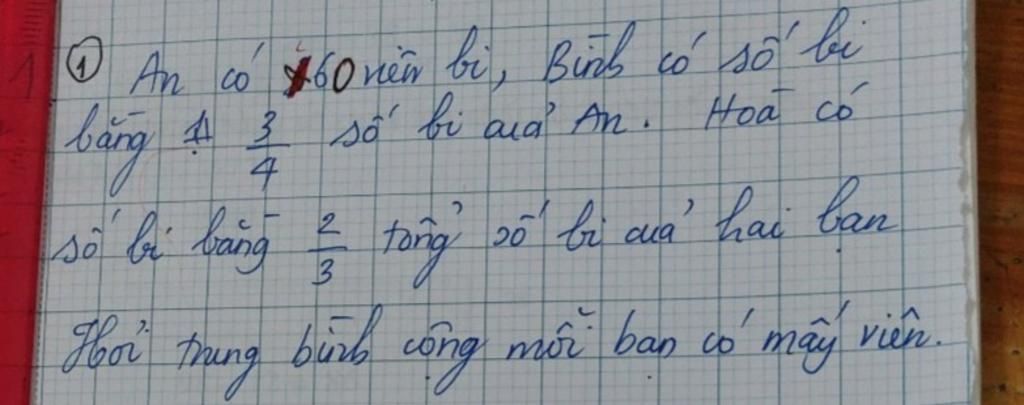 ① An có 60 viên bi, Bình có số bi
bằng 3/4 số bi của An. Hoà có
số bi bằng 2/3 tổng số bi của hai bạn
Hỏi trung bình cộng mỗi bạn có mấy viên.